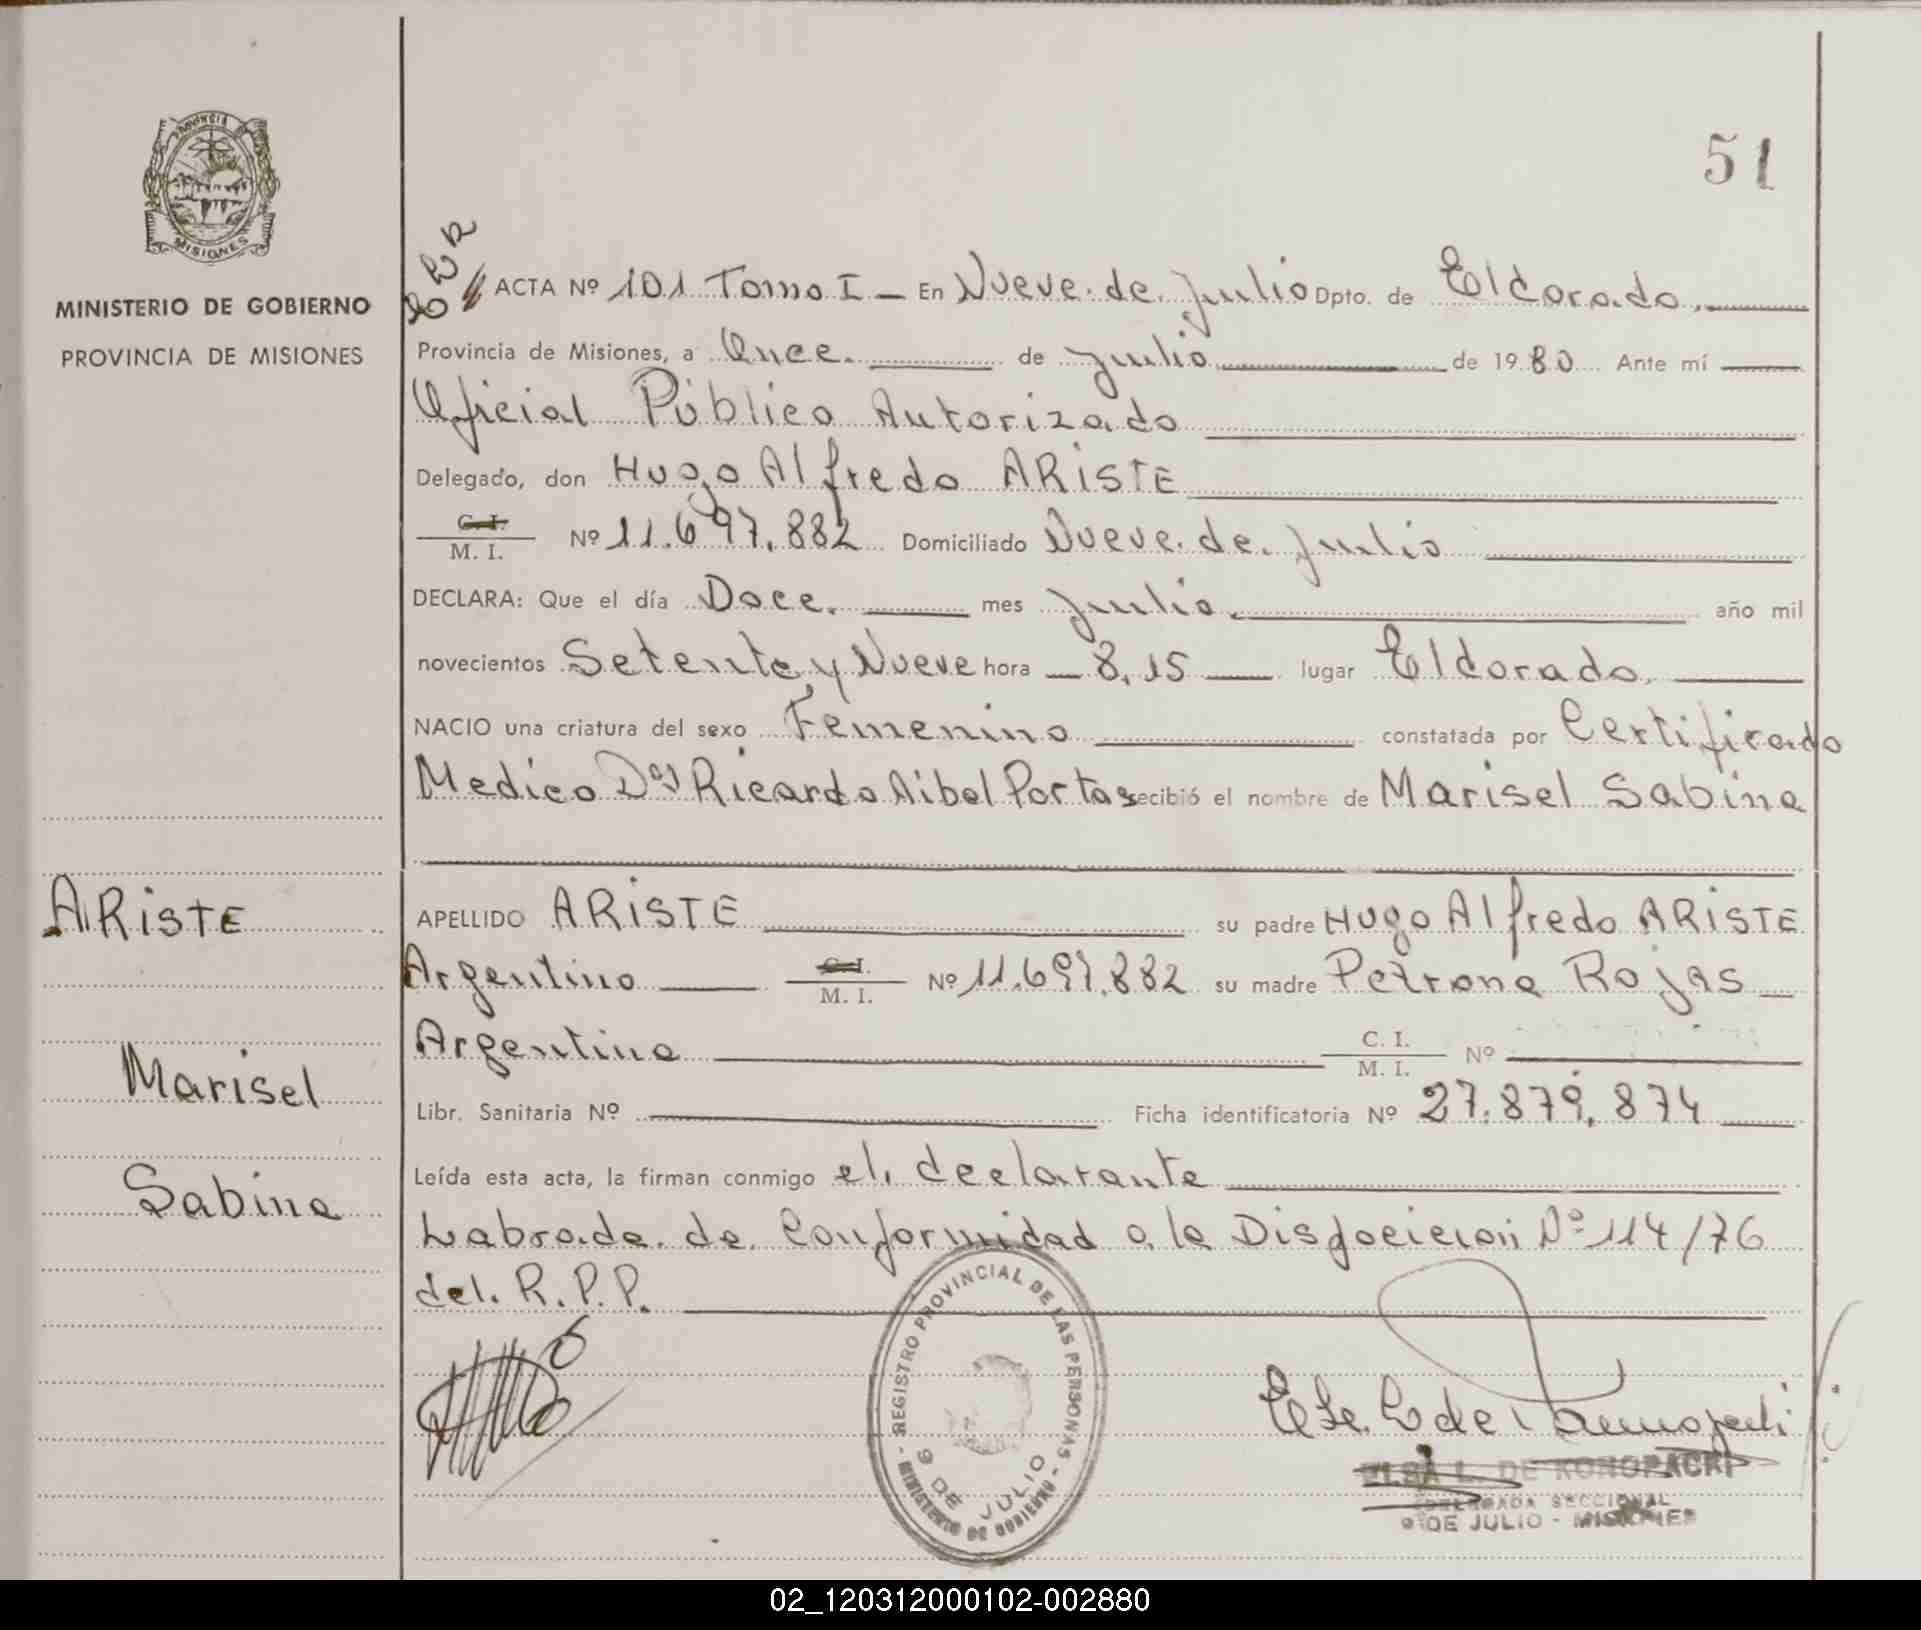 51
PROVINCIA DE
MISIONES
MINISTERIO DE GOBIERNO
PROVINCIA DE MISIONES
ACTA Nº 101 Tomo I — En Nueve de Julio Dpto. de Eldorado
Provincia de Misiones, a Once de Julio de 1980 Ante mí
Oficial Público Autorizado
Delegado, don Hugo Alfredo ARISTE
C. I.
M. I. Nº 11.697.882 Domiciliado Nueve de Julio
DECLARA: Que el día Doce mes Julio año mil
novecientos Setenta y Nueve hora — 8,15 — lugar Eldorado
NACIO una criatura del sexo Femenino constatada por Certificado
Medico Ricardo Aibal Portas recibió el nombre de Marisel Sabina
ARISTE
APELLIDO ARISTE su padre Hugo Alfredo ARISTE
Argentino C. I. M. I. Nº 11.697.882 su madre Petrona Rojas
Argentina C. I. M. I. Nº
Marisel
Libr. Sanitaria Nº Ficha identificatoria Nº 27.879.874
Leída esta acta, la firman conmigo el declarante
Sabina
Labrada de Conformidad a la Disposicion Nº 114/76
del R.P.P.
REGISTRO PROVINCIAL DE LAS PERSONAS - MINISTERIO DE GOBIERNO -
9 DE JULIO
ELSA L. DE KONOPACKI
DELEGADA SECCIONAL
9 DE JULIO - MISIONES
02_120312000102-002880